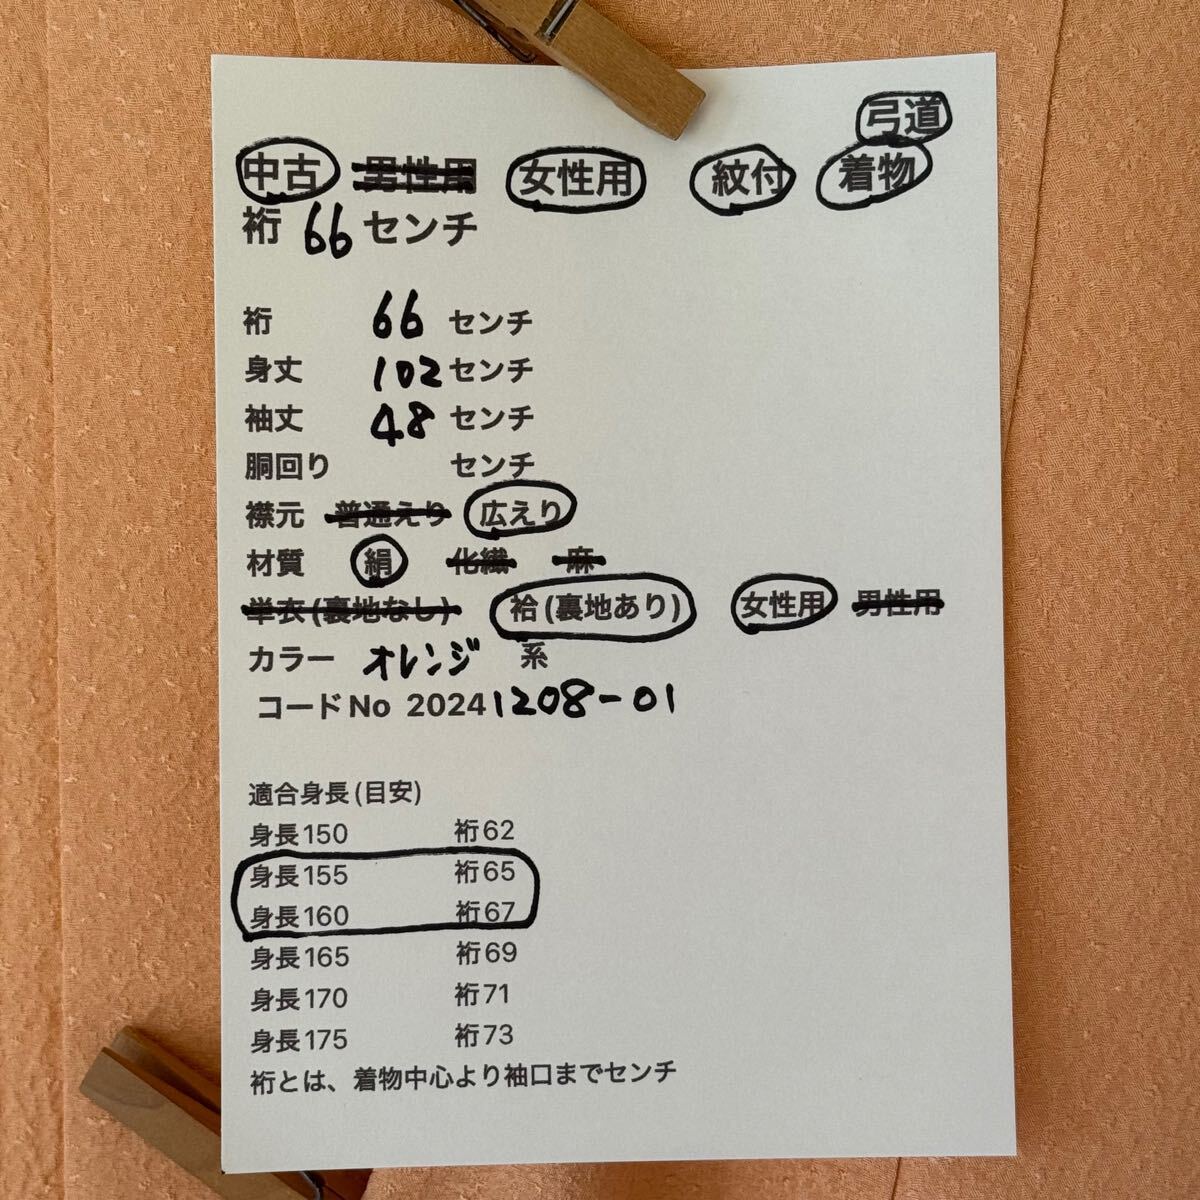 弓道
中古 男性用 女性用 紋付 着物
裄 66 センチ
裄 66 センチ
身丈 102 センチ
袖丈 48 センチ
胴回り センチ
襟元 普通えり 広えり
材質 絹 化繊 麻
単衣(裏地なし) 袷(裏地あり) 女性用 男性用
カラー オレンジ 系
コードNo 20241208-01
適合身長(目安)
身長150 裄62
身長155 裄65
身長160 裄67
身長165 裄69
身長170 裄71
身長175 裄73
裄とは、着物中心より袖口までセンチ